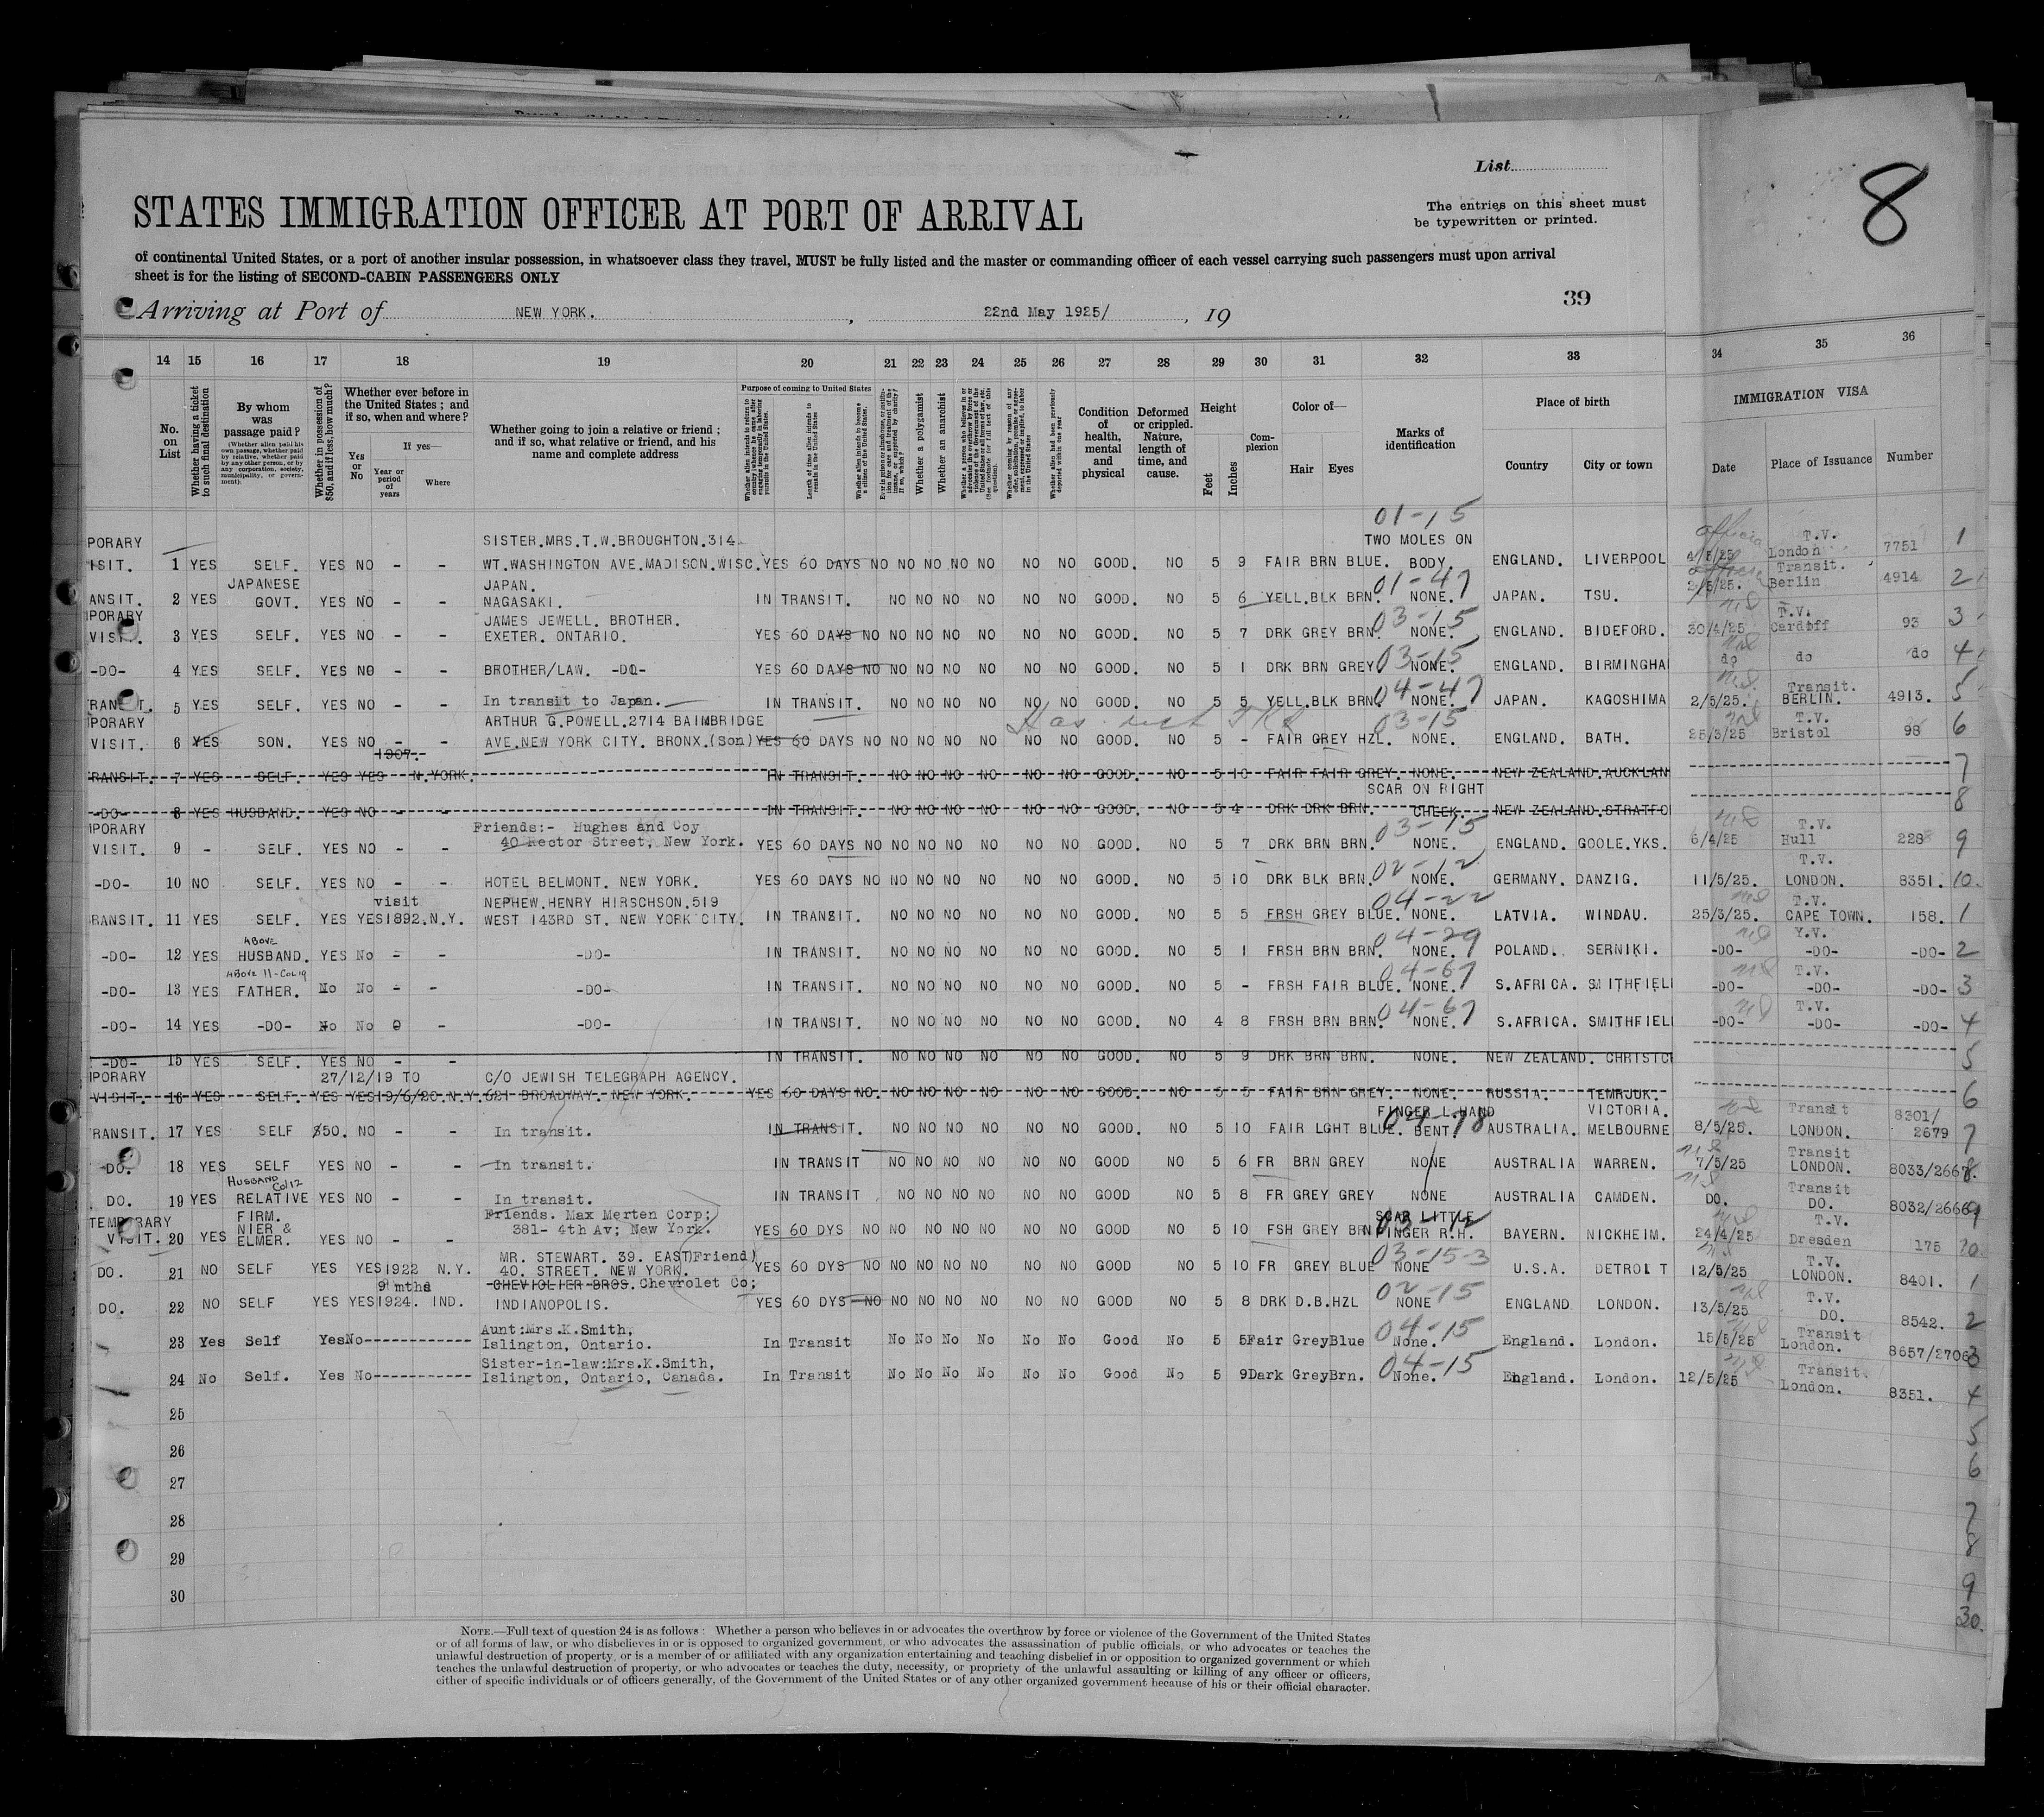 8
List
STATES IMMIGRATION OFFICER AT PORT OF ARRIVAL
The entries on this sheet must
be typewritten or printed.
of continental United States, or a port of another insular possession, in whatsoever class they travel, MUST be fully listed and the master or commanding officer of each vessel carrying such passengers must upon arrival
sheet is for the listing of SECOND-CABIN PASSENGERS ONLY
39
Arriving at Port of NEW YORK. , 22nd May 1925/ , 19
14 15 16 17 18 19 20 21 22 23 24 25 26 27 28 29 30 31 32 33 34 35 36
No. on List
Whether having a ticket to such final destination
By whom was passage paid?
(Whether alien paid his own passage, whether paid by relative, whether paid by any other person, or by any corporation, society, municipality, or government).
Whether in possession of $50, and if less, how much?
Whether ever before in the United States; and if so, when and where?
Yes or No
If yes—
Year or period of years
Where
Whether going to join a relative or friend; and if so, what relative or friend, and his name and complete address
Purpose of coming to United States
Length of time alien intends to remain in the United States
Whether alien intends to become a citizen of the United States.
Whether a polygamist
Whether an anarchist
Condition of health, mental and physical
Deformed or crippled. Nature, length of time, and cause.
Height
Feet
Inches
Complexion
Color of—
Hair Eyes
Marks of identification
Place of birth
Country
City or town
IMMIGRATION VISA
Date
Place of Issuance
Number
01-15
PORARY SISTER.MRS.T.W.BROUGHTON.314 TWO MOLES ON T.V.
ISIT. 1 YES SELF. YES NO - - WT.WASHINGTON AVE.MADISON.WISC. YES 60 DAYS NO NO NO NO NO NO NO GOOD. NO 5 9 FAIR BRN BLUE. BODY. ENGLAND. LIVERPOOL 4/5/25 London 7751 1
JAPANESE JAPAN. 01-47 Transit.
ANSIT. 2 YES GOVT. YES NO - - NAGASAKI. IN TRANSIT. NO NO NO NO NO NO GOOD. NO 5 6 YELL.BLK BRN. NONE. JAPAN. TSU. 2/5/25. Berlin 4914 2
PORARY JAMES JEWELL. BROTHER. 03-15 T.V.
VISIT. 3 YES SELF. YES NO - - EXETER. ONTARIO. YES 60 DAYS NO NO NO NO NO NO NO GOOD. NO 5 7 DRK GREY BRN. NONE. ENGLAND. BIDEFORD. 30/4/25 Cardiff 93 3
-DO- 4 YES SELF. YES NO - - BROTHER/LAW. -DO- YES 60 DAYS NO NO NO NO NO NO NO GOOD. NO 5 1 DRK BRN GREY 03-15 NONE. ENGLAND. BIRMINGHA do do do 4
RANSIT. 5 YES SELF. YES NO - - In transit to Japan. IN TRANSIT. NO NO NO NO NO NO GOOD. NO 5 5 YELL.BLK BRN. 04-47 NONE. JAPAN. KAGOSHIMA 2/5/25. Transit. BERLIN. 4913. 5
PORARY ARTHUR G.POWELL.2714 BAIMBRIDGE Has 03-15 T.V.
VISIT. 6 YES SON. YES NO - - AVE.NEW YORK CITY. BRONX.(Son) YES 60 DAYS NO NO NO NO NO NO NO GOOD. NO 5 - FAIR GREY HZL. NONE. ENGLAND. BATH. 25/3/25 Bristol 98 6
1907.
RANSIT. 7 YES SELF. YES YES N.YORK. IN TRANSIT. NO NO NO NO NO NO GOOD. NO 5 10 FAIR FAIR GREY. NONE. NEW ZEALAND.AUCKLAN 7
SCAR ON RIGHT
-DO- 8 YES HUSBAND. YES NO - - IN TRANSIT. NO NO NO NO NO NO GOOD. NO 5 4 DRK DRK BRN. CHEEK. NEW ZEALAND.STRATFO 8
PORARY Friends:- Hughes and Coy 03-15 T.V.
VISIT. 9 - SELF. YES NO - - 40 Rector Street, New York. YES 60 DAYS NO NO NO NO NO NO NO GOOD. NO 5 7 DRK BRN BRN. NONE. ENGLAND. GOOLE.YKS. 6/4/25 Hull 228 9
02-12 T.V.
-DO- 10 NO SELF. YES NO - - HOTEL BELMONT. NEW YORK. YES 60 DAYS NO NO NO NO NO NO NO GOOD. NO 5 10 DRK BLK BRN. NONE. GERMANY. DANZIG. 11/5/25. LONDON. 8351. 10.
visit NEPHEW.HENRY HIRSCHSON.519 04-22 T.V.
RANSIT. 11 YES SELF. YES YES 1892.N.Y. WEST 143RD ST. NEW YORK CITY. IN TRANSIT. NO NO NO NO NO NO GOOD. NO 5 5 FRSH GREY BLUE. NONE. LATVIA. WINDAU. 25/3/25. CAPE TOWN. 158. 1
ABOVE 04-29 Y.V.
-DO- 12 YES HUSBAND. YES No - - -DO- IN TRANSIT. NO NO NO NO NO NO GOOD. NO 5 1 FRSH BRN BRN. NONE. POLAND. SERNIKI. -DO- -DO- -DO- 2
ABOVE 11-COL 19 04-67 T.V.
-DO- 13 YES FATHER. No No - - -DO- IN TRANSIT. NO NO NO NO NO NO GOOD. NO 5 - FRSH FAIR BLUE. NONE. S.AFRICA. SMITHFIEL -DO- -DO- -DO- 3
04-67 T.V.
-DO- 14 YES -DO- No No 0 - -DO- IN TRANSIT. NO NO NO NO NO NO GOOD. NO 4 8 FRSH BRN BRN. NONE. S.AFRICA. SMITHFIEL -DO- -DO- -DO- 4
-DO- 15 YES SELF. YES NO - - IN TRANSIT. NO NO NO NO NO NO GOOD. NO 5 9 DRK BRN BRN. NONE. NEW ZEALAND. CHRISTC 5
PORARY 27/12/19 TO C/O JEWISH TELEGRAPH AGENCY.
VISIT. 16 YES SELF. YES YES 19/6/20.N.Y. 621 BROADWAY. NEW YORK. YES 60 DAYS NO. NO NO NO NO NO NO GOOD. NO 5 5 FAIR BRN GREY. NONE. RUSSIA. TEMRJUK. 6
FINGER L.HAND VICTORIA. Transit 8301/
RANSIT. 17 YES SELF $50. NO - - In transit. IN TRANSIT. NO NO NO NO NO NO GOOD. NO 5 10 FAIR LGHT BLUE. BENT 04-78 AUSTRALIA. MELBOURNE 8/5/25. LONDON. 2679 7
-DO. 18 YES SELF YES NO - - In transit. IN TRANSIT NO NO NO NO NO NO GOOD NO 5 6 FR BRN GREY NONE AUSTRALIA WARREN. 7/5/25 Transit LONDON. 8033/2667 8.
HUSBAND Col 12 Transit
DO. 19 YES RELATIVE YES NO - - In transit. IN TRANSIT NO NO NO NO NO NO GOOD NO 5 8 FR GREY GREY NONE AUSTRALIA CAMDEN. DO. DO. 8032/2666 9
TEMPORARY FIRM. Friends. Max Merten Corp; SCAR LITTLE T.V.
VISIT. 20 YES NIER & ELMER. YES NO - - 381- 4th Av; New York. YES 60 DYS NO NO NO NO NO NO NO GOOD NO 5 10 FSH GREY BRN FINGER R.H. BAYERN. NICKHEIM. 24/4/25 Dresden 175 20.
MR. STEWART. 39. EAST (Friend) 03-15-3 T.V.
DO. 21 NO SELF YES YES 1922 N.Y. 40. STREET. NEW YORK. YES 60 DYS NO NO NO NO NO NO NO GOOD NO 5 10 FR GREY BLUE NONE U.S.A. DETROIT 12/5/25 LONDON. 8401. 1
9 mths CHEVIOLIER BROS. Chevrolet Co; 02-15 T.V.
DO. 22 NO SELF YES YES 1924. IND. INDIANOPOLIS. YES 60 DYS NO NO NO NO NO NO NO GOOD NO 5 8 DRK D.B.HZL NONE ENGLAND LONDON. 13/5/25 DO. 8542. 2
Aunt:Mrs.K.Smith, 04-15 Transit
23 Yes Self Yes No Islington, Ontario. In Transit No No No No No No Good No 5 5 Fair Grey Blue None. England. London. 15/5/25 London. 8657/2706 3
Sister-in-law:Mrs.K.Smith, 04-15 Transit.
24 No Self. Yes No Islington, Ontario, Canada. In Transit No No No No No No Good No 5 9 Dark Grey Brn. None. England. London. 12/5/25 London. 8351. 4
25 5
26 6
27 7
28 8
29 9
30 30.
NOTE.—Full text of question 24 is as follows: Whether a person who believes in or advocates the overthrow by force or violence of the Government of the United States
or of all forms of law, or who disbelieves in or is opposed to organized government, or who advocates the assassination of public officials, or who advocates or teaches the
unlawful destruction of property, or is a member of or affiliated with any organization entertaining and teaching disbelief in or opposition to organized government or which
teaches the unlawful destruction of property, or who advocates or teaches the duty, necessity, or propriety of the unlawful assaulting or killing of any officer or officers,
either of specific individuals or of officers generally, of the Government of the United States or of any other organized government because of his or their official character.